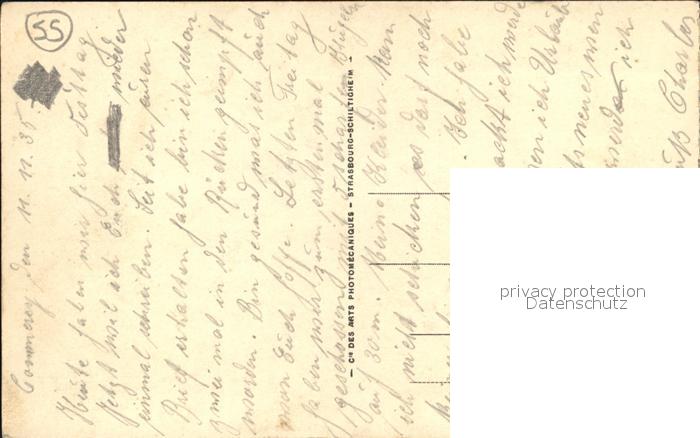 55
Commercy den 11.11.35.
Heute haben wir hier Festtag
Jetzt will ich Euch wieder
einmal schreiben. Seit ich euren
Brief erhalten habe bin ich schon
zwei mal in den Rücken geimpft
worden. Bin gesund was ich auch
von Euch hoffe. Letzten Freitag
haben wir zum erstenmal
geschossen mit scharfen Kugeln
auf 30 m. Meine Kleider kann
ich nicht schicken es darf noch
Ich habe
ich werde
ich Urlaub
neues wen
ich
Charles
— Cie DES ARTS PHOTOMÉCANIQUES — STRASBOURG-SCHILTIGHEIM —
privacy protection
Datenschutz